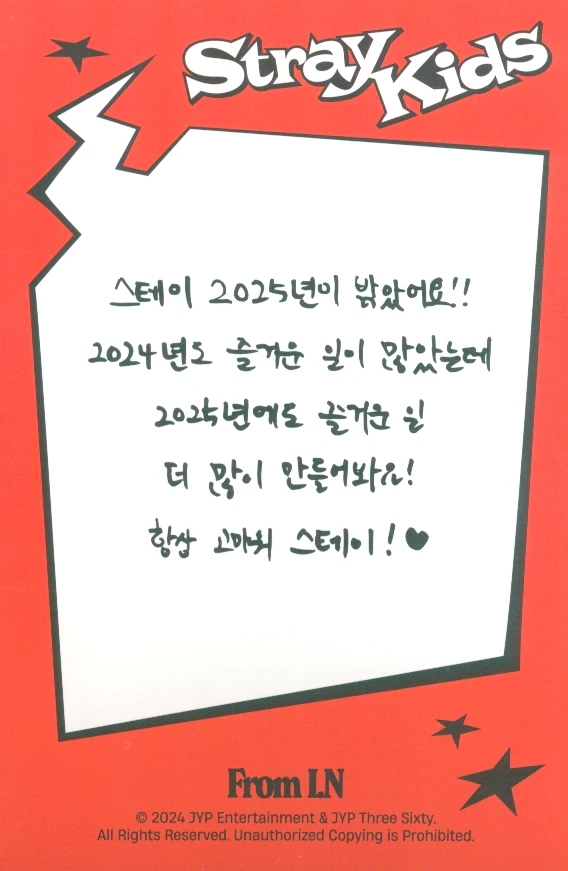 Stray Kids
스테이 2025년이 밝았어요!!
2024년도 즐거운 일이 많았는데
2025년에도 즐거운 일
더 많이 만들어봐요!
항상 고마워 스테이! ♥
From I.N
© 2024 JYP Entertainment & JYP Three Sixty.
All Rights Reserved. Unauthorized Copying is Prohibited.